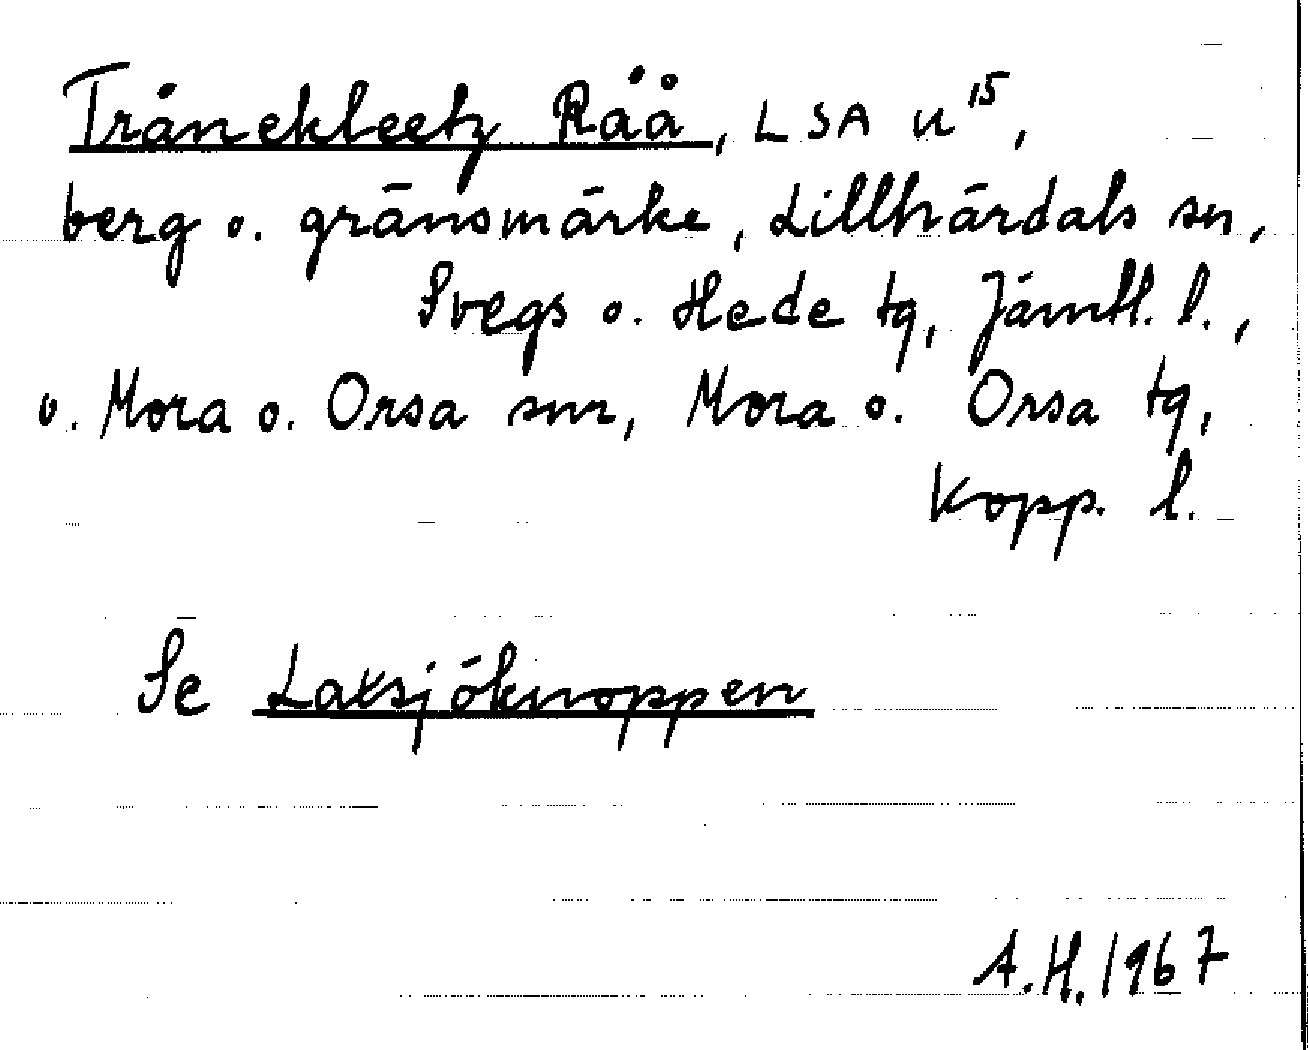 Trånekleetz Råå, LSA u¹⁵,
berg o. gränsmärke, Lillhärdals sn,
Svegs o. Hede tg, Jämtl. l.,
o. Mora o. Orsa snr, Mora o. Orsa tg,
Kopp. l.
Se Laxsjöknoppen
A.H. 1967